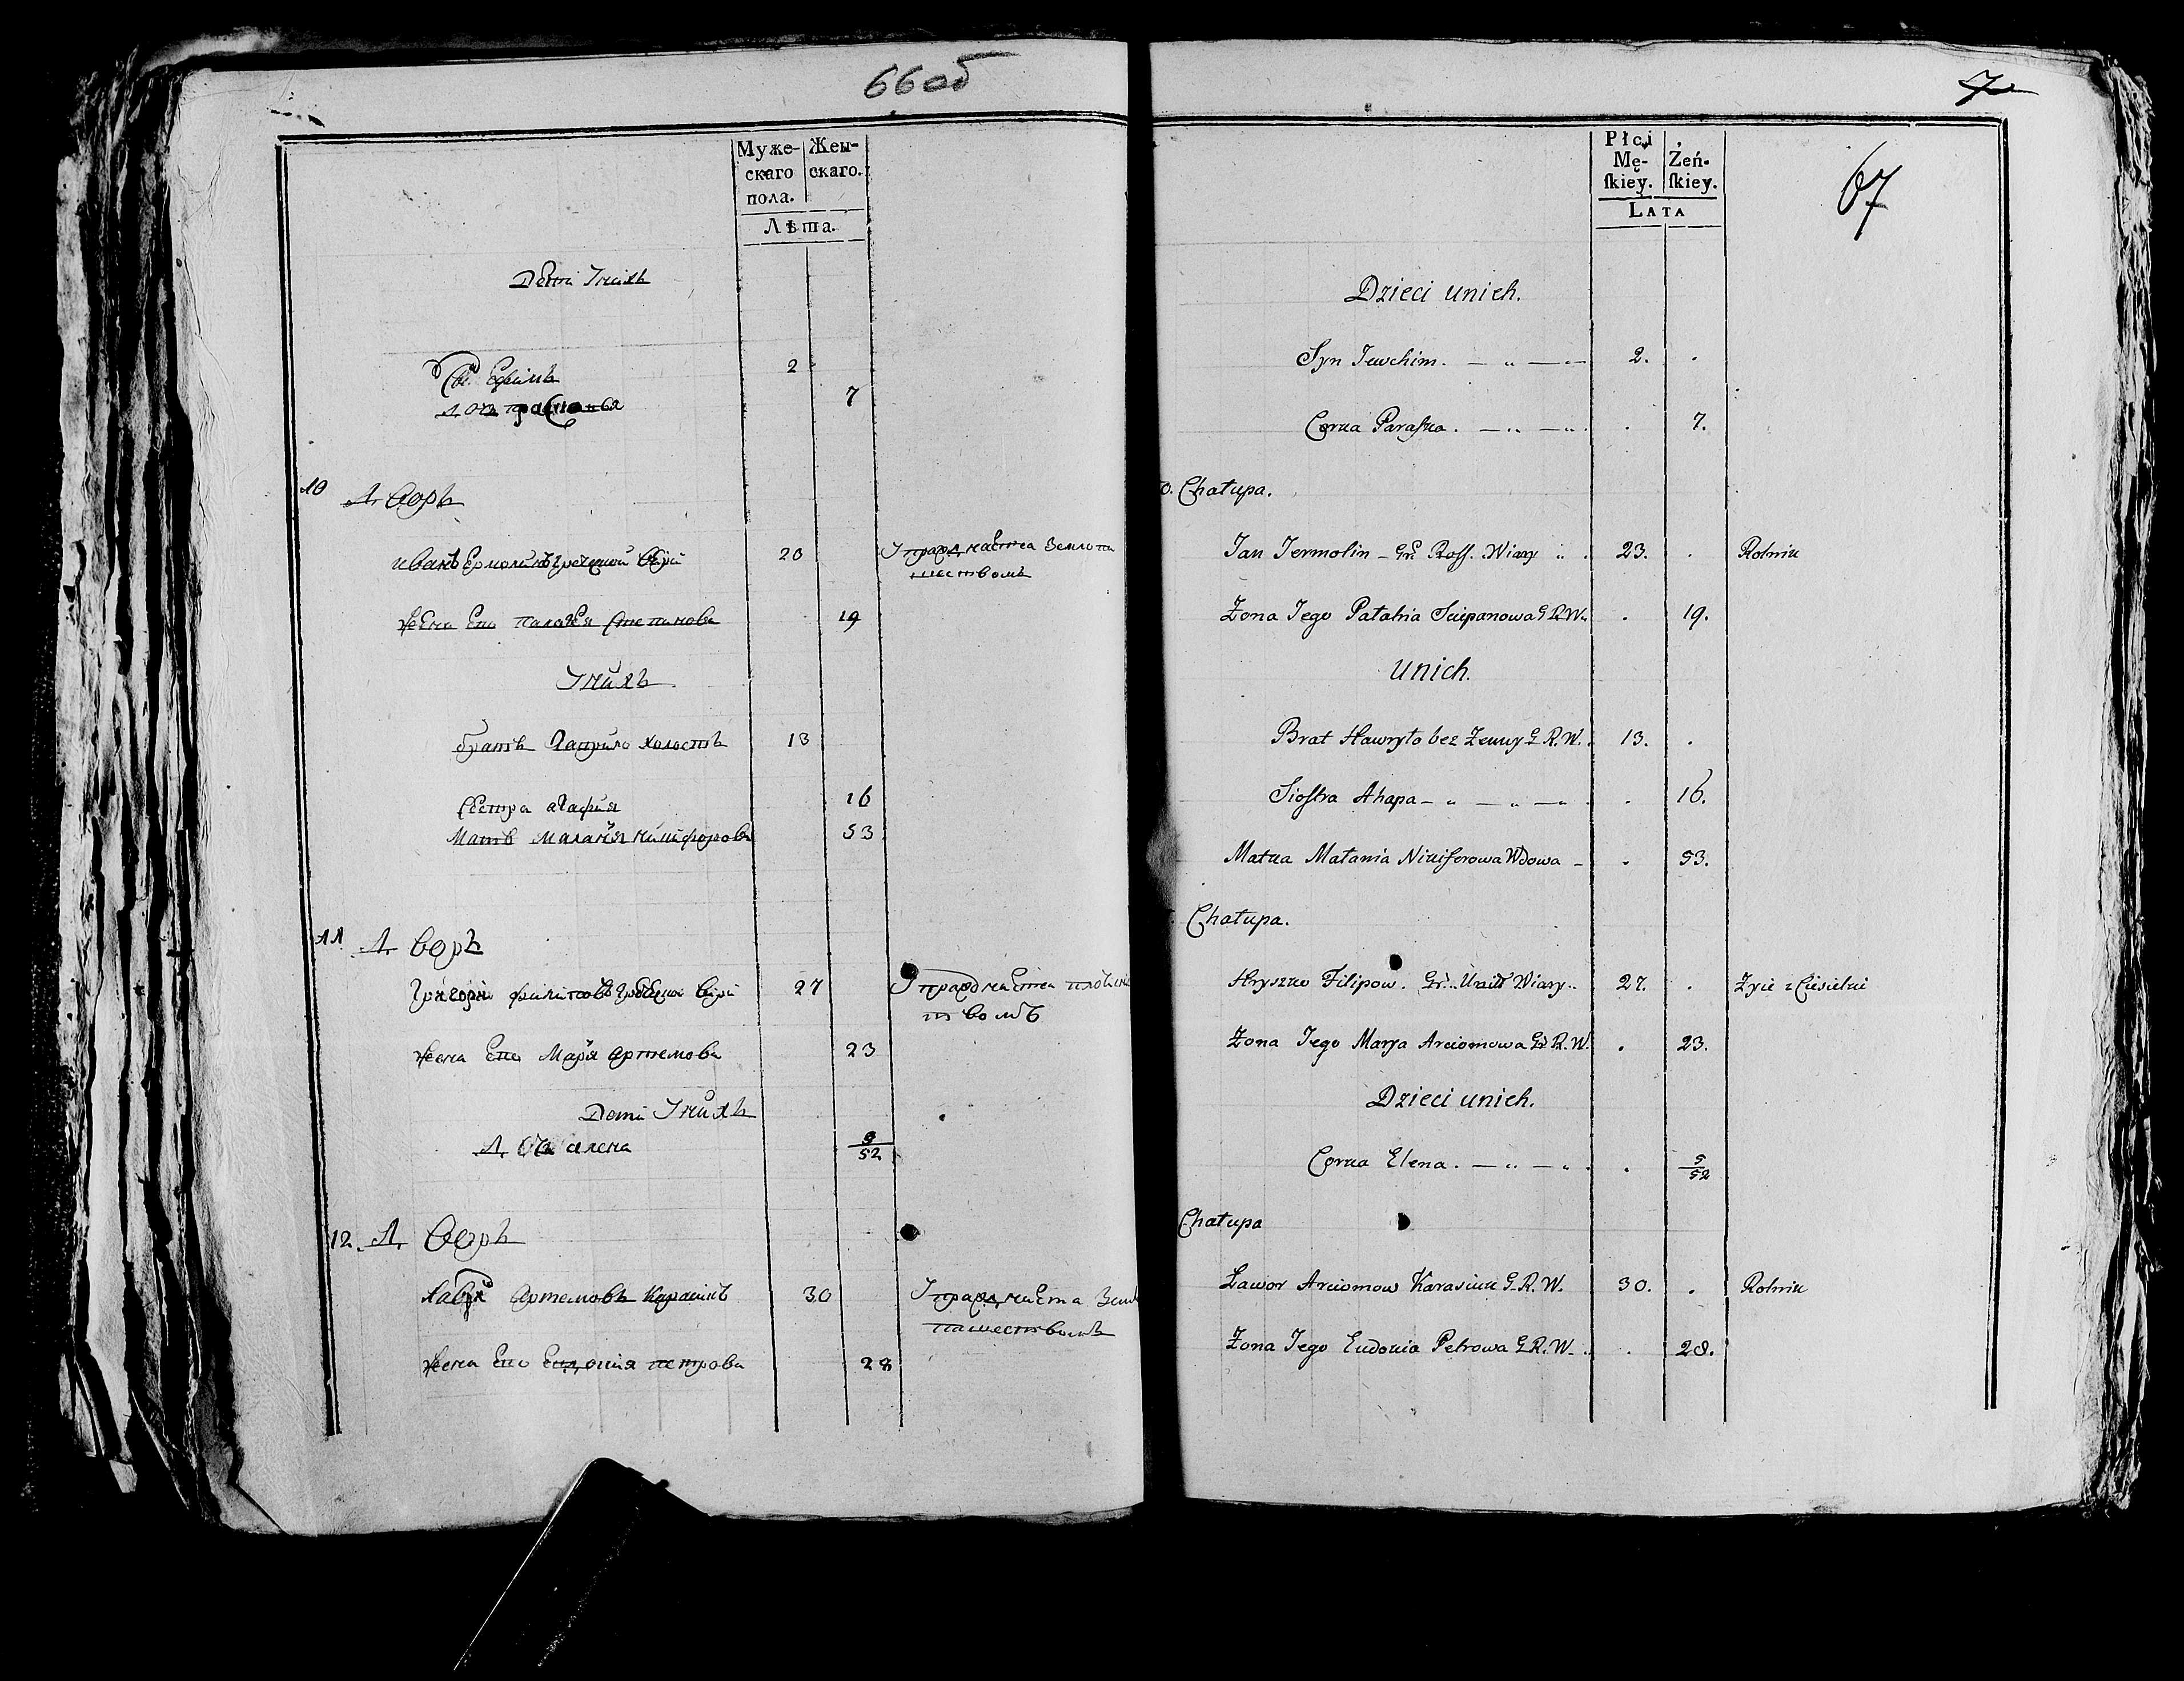 66об
Муже-
скаго
пола.
Жен-
скаго.
Лѣта.
Дети У нихъ
Сы Ефимъ 2
Доч 7
10 Дворъ
иванъ Ермолинъ греческой вери 20 Упражнаетца Землопа
шествомъ
жена Его палагея Степанова 19
У нихъ
братъ Гаврило холостъ 13
сестра агафия 16
Мать маланя никифорова 53
11 Дворъ
Григори филиповъ вери 27 Упражнаетца
ствомъ
жена Его Марья Артемова 23
Дети У нихъ
Доч алена 9/52
12. Дворъ
Лавръ Артемовъ Карасикъ 30 Упражнаета Земле
пашествомъ
жена Его Евдокия петрова 28
7
Płci
Mę-
ſkiey.
Żeń-
ſkiey.
Lata
67
Dzieci unich.
Syn Jewchim. 2. .
Corka Paraſka. . 7.
0. Chałupa.
Jan Jermolin - Gr. Roſſ. Wiary 23. . Rolnik
Żona Jego Pałahia Sciepanowa G R W. . 19.
unich.
Brat Hawryło bez Żenny G. R. W. 13. .
Sioſtra Ahapa . 16.
Matka Małania Nikiforowa Wdowa - . 53.
Chałupa.
Hryszko Filipow. Gr. Unit Wiary 27. . Zyie z Ciesielki
Żona Jego Marya Arciomowa Gr R. W. . 23.
Dzieci unich.
Corka Elena. . 5/52
Chałupa
Ławor Arciomow Karasiuk G. R. W. 30. . Rolnik
Żona Jego Eudokia Petrowa G R. W. . 28.